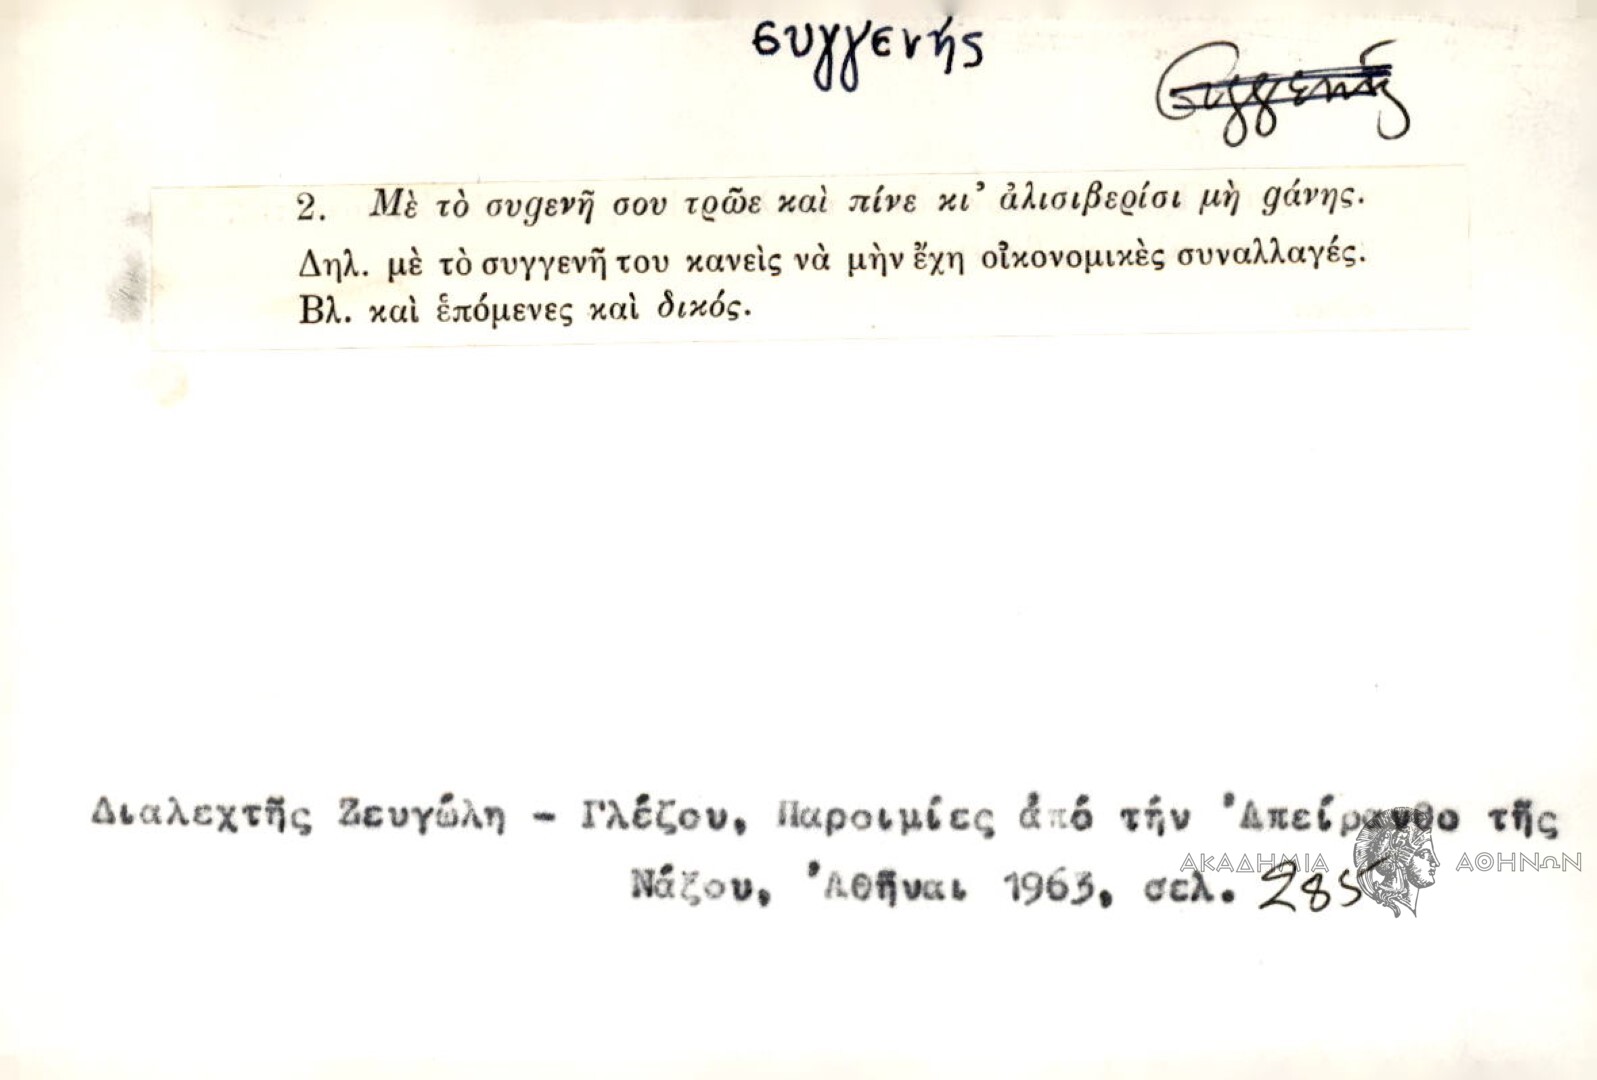 συγγενής
συγγενής
2. Μὲ τὸ συgενῆ σου τρῶε καὶ πίνε κι’ ἀλισιβερίσι μὴ gάνης.
Δηλ. μὲ τὸ συγγενῆ του κανεὶς νὰ μὴν ἔχη οἰκονομικὲς συναλλαγές.
Βλ. καὶ ἑπόμενες καὶ δικός.
Διαλεχτῆς Ζευγώλη - Γλέζου, Παροιμίες ἀπό τήν 'Απείρανθο τῆς
ΑΚΑΔΗΜΙΑ ΑΘΗΝΩΝ
Νάξου, 'Αθῆναι 1963, σελ. 285